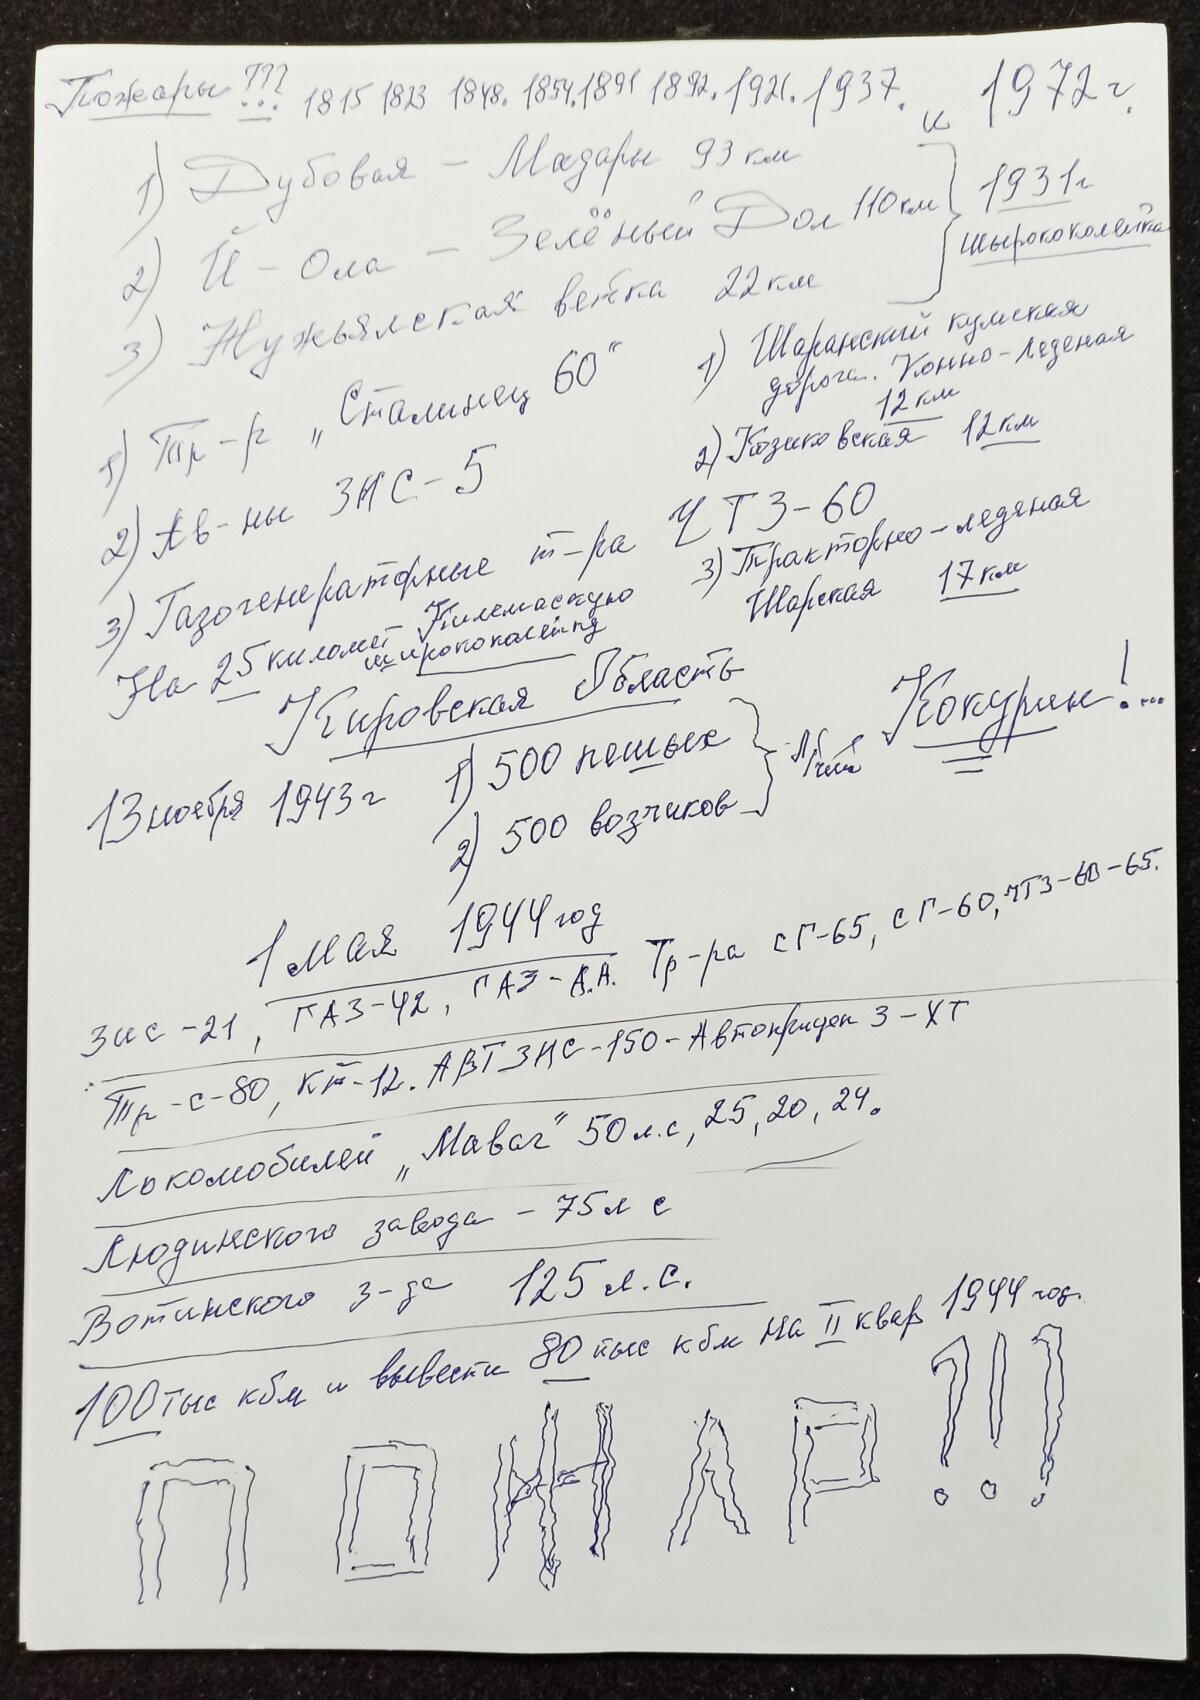 Пожары ???
1815 1823 1848. 1854. 1891 1892. 1921. 1937. и 1972 г.
1) Дубовая – Мадары 93 км
2) Й – Ола – Зелёный Дол 110 км
3) Нужьялская ветка 22 км
1931 г
Шырококолейка
1) Тр-р „Сталинец 60"
2) Ав-ны ЗИС-5
3) Газогенераторные т-ра ЧТЗ-60
На 25 километ Пилемаскую
широколейку
1) Шаранский
дорога. Конно-леденая
12 км
2) Козиковская 12 км
3) Тракторно-леденая
Шарская 17 км
Кировская Область
13 ноября 1943 г
1) 500 пешых
2) 500 возчиков
Кокурин!...
1 мая 1944 год
Зис-21, ГАЗ-42, ГАЗ-А.А. Тр-ра СГ-65, СГ-60, ЧТЗ-60-65.
Тр-с-80, КТ-12. АВТ ЗИС-150-Автокриден З-ХТ
Локомобилей „Маваг" 50 л.с, 25, 20, 24.
Людинского завода – 75 л с
Вотинского з-да 125 л.с.
100 тыс кбм и вывести 80 тыс кбм на II квар 1944 год.
ПОЖАР !!!